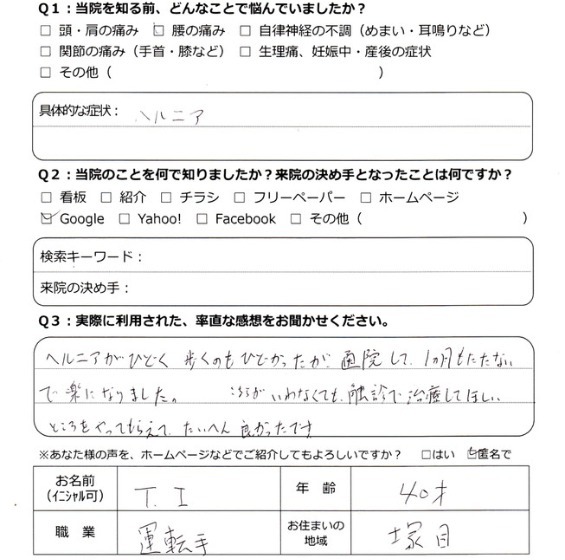 Q1：当院を知る前、どんなことで悩んでいましたか？
□ 頭・肩の痛み ☑ 腰の痛み □ 自律神経の不調（めまい・耳鳴りなど）
□ 関節の痛み（手首・膝など） □ 生理痛、妊娠中・産後の症状
□ その他（ ）
具体的な症状： ヘルニア
Q2：当院のことを何で知りましたか？来院の決め手となったことは何ですか？
□ 看板 □ 紹介 □ チラシ □ フリーペーパー □ ホームページ
☑ Google □ Yahoo! □ Facebook □ その他（ ）
検索キーワード：
来院の決め手：
Q3：実際に利用された、率直な感想をお聞かせください。
ヘルニアがひどく 歩くのもひどかったが、通院して、1ヶ月もたたない
で楽になりました。 いわなくても、触診で治療してほしい
ところをやってもらえて、たいへん良かったです
※あなた様の声を、ホームページなどでご紹介してもよろしいですか？ □はい ☑匿名で
お名前 T. I 年 齢 40才
（イニシャル可）
職 業 運転手 お住まいの
地域